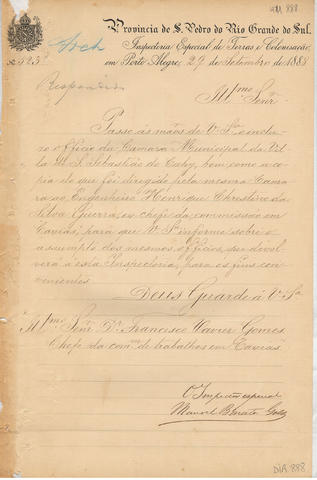 AM 888
Provincia de S. Pedro do Rio Grande do Sul.
Inspectoria Especial de Terras e Colonisação,
em Porto Alegre, 27 de Setembro de 1888
Nº 523
Arch
Respondido
Illmo Senr.
Passo ás mãos de Vª Sª o incluso
officio da Camara Municipal da Vil-
la de S. Sebastião do Cahy, bem como a co-
pia do que foi dirigido pela mesma Cama-
ra ao Engenheiro Henrique Christino da
Silva Guerra, ex chefe da commissão em
Caxias, para que Vª Sª informe sobre o
assumpto dos mesmos officios, que devol-
verá a esta Inspectoria, para os fins con-
venientes.
Deus Guarde á Vª Sª
Illmo Senr. Dr. Francisco Xavier Gomes
Chefe da comm de trabalhos em Caxias
O Inspector especial
Manoel
DIA.888